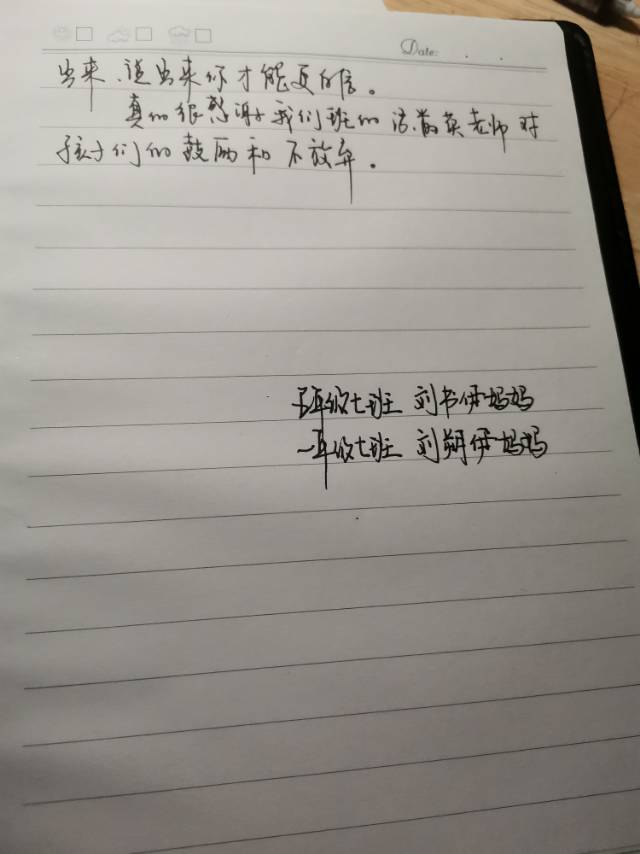 Date:
出来、说出来你才能更自信。
真的很感谢我们班的 老师对
孩子们的鼓励和不放弃。
年级七班 刘书伊妈妈
一年级七班 刘朔伊妈妈